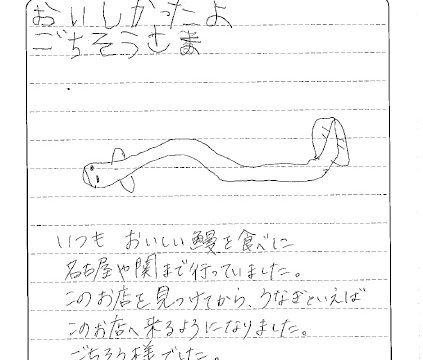 おいしかったよ
ごちそうさま
いつも おいしい鰻を食べに
名古屋や関まで行っていました。
このお店を見つけてから、うなぎといえば
このお店へ来るようになりました。
ごちそう様でした。